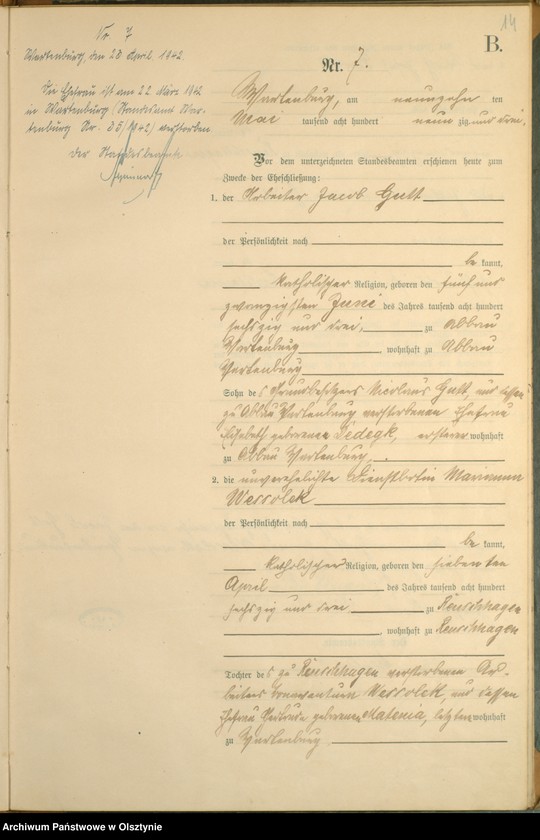 14
B.
Nr 7
Wartenburg, den 28 April 1942.
Die Ehefrau ist am 22 März 1942
in Wartenburg (Standesamt War-
tenburg Nr. 35/1942) verstorben
Der Standesbeamte
Nr. 7.
Wartenburg, am neunzehn ten
Mai tausend acht hundert neun zig und drei.
Vor dem unterzeichneten Standesbeamten erschienen heute zum
Zwecke der Eheschließung:
1. der Arbeiter Jacob Gutt
der Persönlichkeit nach
be kannt,
katholischer Religion, geboren den fünf und
zwanzigsten Juni des Jahres tausend acht hundert
sechszig und drei, zu Abbau
Wartenburg, wohnhaft zu Abbau
Wartenburg
Sohn des Grundbesitzers Nicolaus Gutt, und dessen
zu Abbau Wartenburg verstorbenen Ehefrau
Elisabeth geborenen ersterer wohnhaft
zu Abbau Wartenburg.
2. die unverehelichte Dienstbotin Marianna
Wessolek
der Persönlichkeit nach
be kannt,
katholischer Religion, geboren den siebenten
April des Jahres tausend acht hundert
sechszig und drei zu Reuschhagen
, wohnhaft zu Reuschhagen
Tochter des zu Reuschhagen verstorbenen Ar-
beiters Bonaventura Wessolek, und dessen
Ehefrau Gertrude geborenen Materia, letztere wohnhaft
zu Wartenburg
Archiwum Państwowe w Olsztynie